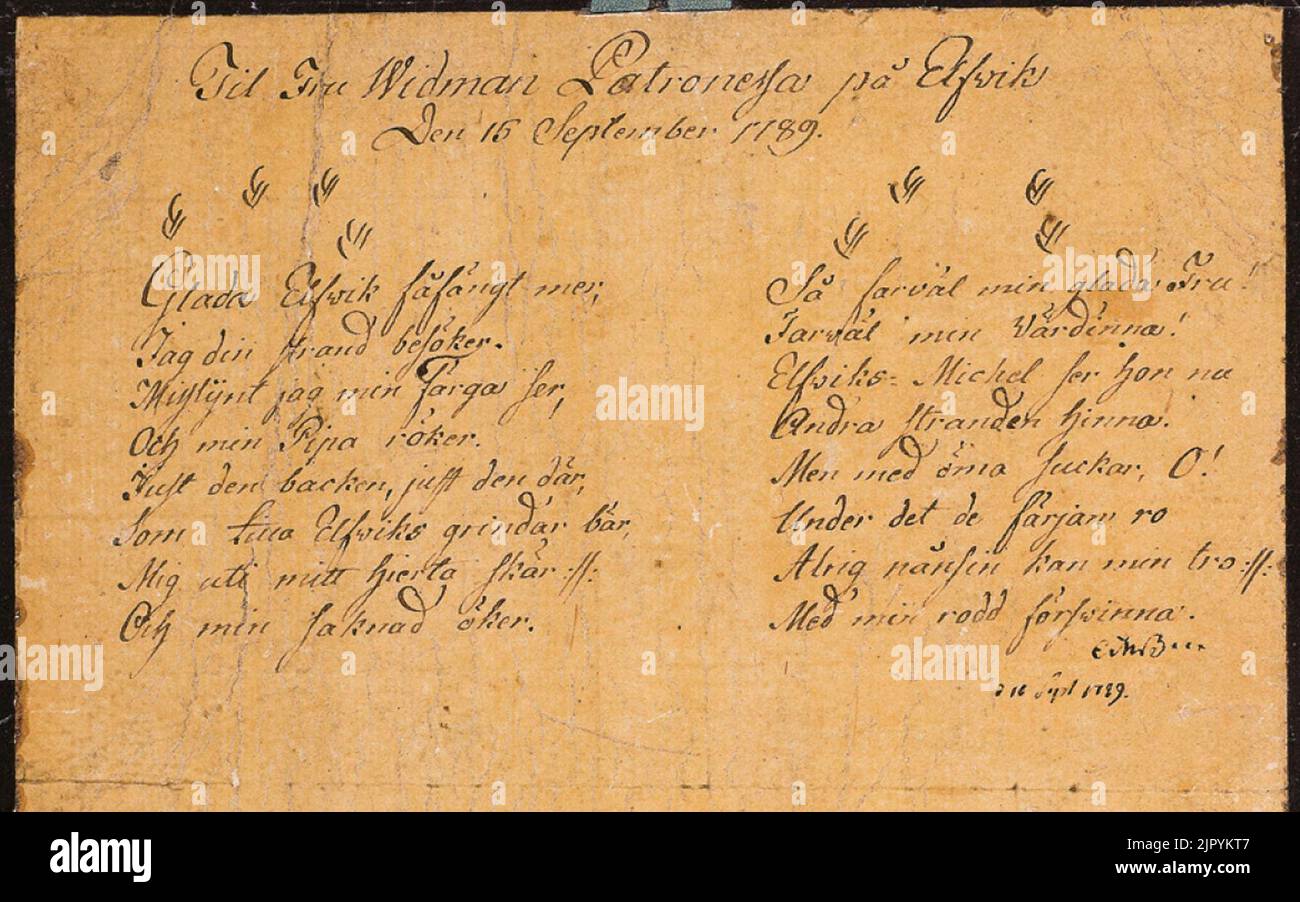 Til Fru Widman Patronessa på Elfwik
Den 15 September 1789.
Glada Elfwik fåfängt mer,
Jag din strand besöker.
Misslynt jag min Farga ser,
Och min Pipa röker.
Just den backen, just den där,
Som Elfwiks grindar bär,
Mig uti mitt hjerta skär :||:
Och min saknad öker.
Så farväl min glada Fru!
Farväl min Värdinna!
Elfwiks=Michel ser hon nu
Andra stranden hinna.
Men med öma suckar, O!
Under det de färjan ro
Alrig nånsin kan min tro :||:
Med min rodd förswinna.
CMB
d 16 Sept 1789.
alamy
Image ID: 2JPYKT7
www.alamy.com